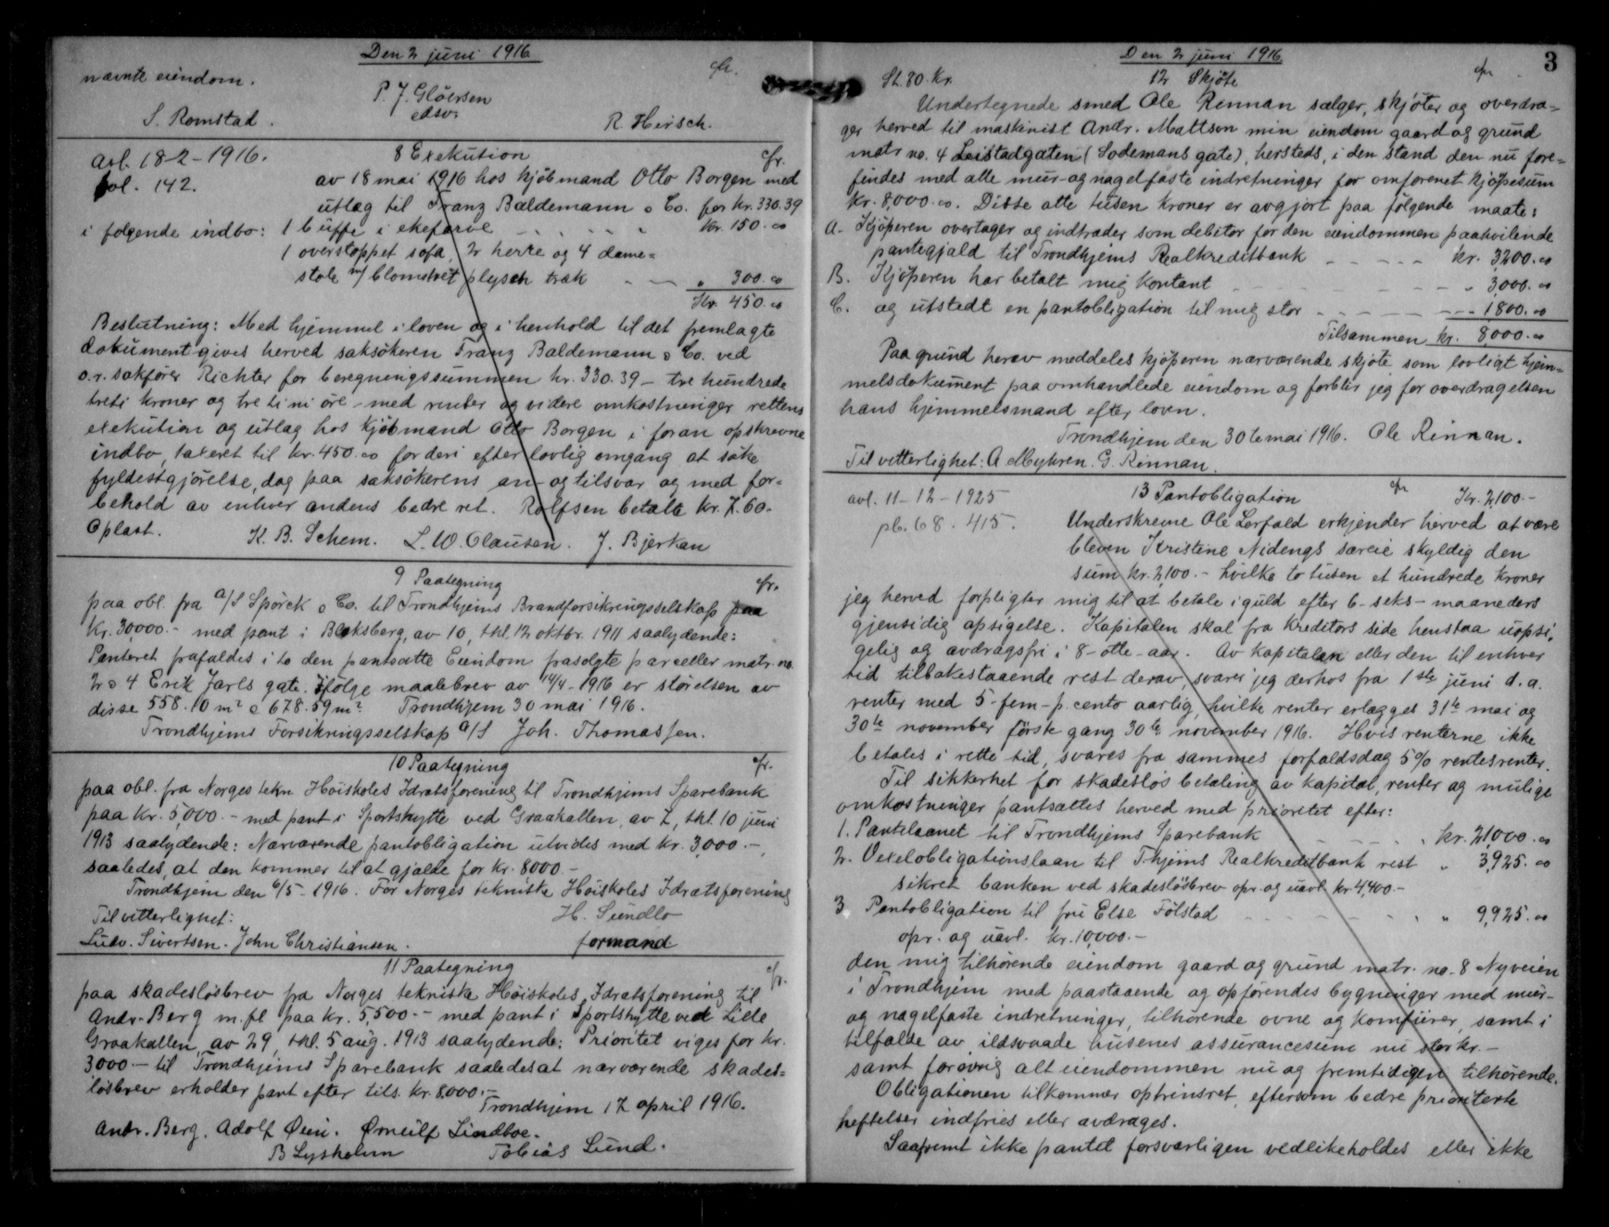 Den 2 juni 1916
nævnte eiendom. cfr.
P. J. Gløersen
edsv.
S. Romstad. R. Hirsch.
avl. 18-2-1916. 8 Exekution cfr.
fol. 142. av 18 mai 1916 hos kjöbmand Otto Borgen med
utlæg til Franz Baldemann & Co. for kr. 330.39
i følgende indbo: 1 buffe i ekefarve - - - - - kr. 150.00
1 overstoppet sofa, 2 herre og 4 dame=
stole m/ blomstret plysch træk - - - " 300.00
Kr. 450.00
Beslutning: Med hjemmel i loven og i henhold til det fremlagte
dokument gives herved saksökeren Franz Baldemann & Co. ved
o.r. sakfører Richter for beregningssummen kr. 330.39 - tre hundrede
treti kroner og tre ti ni öre - med renter og videre omkostninger rettens
exekution og utlæg hos kjöbmand Otto Borgen i foran opskrevne
indbo, taxeret til kr. 450.00 for deri efter lovlig omgang at söke
fyldestgjörelse, dog paa saksökerens an- og tilsvar og med for=
behold av enhver andens bedre ret. Rolfsen betalt kr. 7.60.
Oplæst. K. B. Schem. L. W. Clausen. J. Bjerkan
9 Paategning cfr.
paa obl. fra A/S Spörck & Co. til Trondhjems Brandforsikringsselskap paa
Kr. 30,000.- med pant i Bloksberg, av 10, tkl. 12 oktbr. 1911 saalydende:
Panteret frafaldes i to den pantsatte Eiendom frasolgte parceller matr. no.
2 & 4 Erik Jarls gate. Ifølge maalebrev av 14/4-1916 er størelsen av
disse 558.10 m² & 678.59 m². Trondhjem 30 mai 1916.
Trondhjems Forsikringsselskap A/S Joh. Thomassen.
10 Paategning cfr.
paa obl. fra Norges tekn. Høiskoles Idrætsforening til Trondhjems Sparebank
paa kr. 5,000.- med pant i Sportshytte ved Graakallen, av 7, tkl. 10 juni
1913 saalydende: Nærværende pantobligation utvides med kr. 3,000.-,
saaledes, at den kommer til at gjælde for kr. 8000.-
Trondhjem den 6/5-1916. For Norges tekniske Høiskoles Idrætsforening
Til vitterlighet: H. Sundlo
Ludv. Sivertsen. John Christiansen. formand
11 Paategning cfr.
paa skadesløsbrev fra Norges tekniske Høiskoles Idrætsforening til
Andr. Berg m.fl. paa kr. 5,500.- med pant i Sportshytte ved Lille
Graakallen, av 29, tkl. 5 aug. 1913 saalydende: Prioritet viges for kr.
3000.- til Trondhjems Sparebank saaledes at nærværende skades=
løsbrev erholder pant efter tils. kr. 8000.-
Trondhjem 17 april 1916.
Andr. Berg. Adolf Øien. Ørneulf Lindboe.
B Lysholm Tobias Lund.
Den 2 juni 1916 3
St. 30 Kr. 12 Skjöte cfr.
Undertegnede smed Ole Rinnan sælger, skjöter og overdra=
ger herved til maskinist Andr. Mattson min eiendom gaard og grund
matr no. 4 Leistadgaten (Sodemans gate), hersteds, i den stand den nu fore=
findes med alle mur- og nagelfaste indretninger for omforenet kjöpesum
kr. 8,000.00. Disse otte tusen kroner er avgjort paa følgende maate:
A. Kjöperen overtager og indtræder som debitor for den eiendommen paahvilende
pantegjæld til Trondhjems Realkreditbank - - - - - kr. 3,200.00
B. Kjöperen har betalt mig kontant - - - - - " 3,000.00
C. og utstedt en pantobligation til mig stor - - - - - " 1,800.00
Tilsammen kr. 8,000.00
Paa grund herav meddeles kjöperen nærværende skjöte som lovligt hjem=
melsdokument paa omhandlede eiendom og forblir jeg for overdragelsen
hans hjemmelsmand efter loven.
Trondhjem den 30te mai 1916. Ole Rinnan.
Til vitterlighet: A Myhren. G. Rinnan.
avl. 11-12-1925 13 Pantobligation cfr Kr. 2,100.-
pb. 68. 415. Underskrevne Ole Lerfald erkjender herved at være
bleven Kristine Nidengs særeie skyldig den
sum kr. 2,100.- hvilke to tusen et hundrede kroner
jeg herved forpligter mig til at betale i guld efter 6- seks- maaneders
gjensidig opsigelse. Kapitalen skal fra kreditors side henstaa uopsi=
gelig og avdragsfri i 8- otte- aar. Av kapitalen eller den til enhver
tid tilbakestaaende rest derav, svarer jeg derhos fra 1ste juni d.a.
renter med 5- fem- p. cento aarlig, hvilke renter erlægges 31te mai og
30te november förste gang 30te november 1916. Hvis renterne ikke
betales i rette tid, svares fra sammes forfaldsdag 5% rentesrenter.
Til sikkerhet for skadeslös betaling av kapital, renter og mulige
omkostninger pantsættes herved med prioritet efter:
1. Pantelaanet til Trondhjems Sparebank - - - - kr. 21,000.00
2. Vexelobligationslaan til T.hjems Realkreditbank rest " 3,925.00
sikret banken ved skadeslösbrev opr. og uavl. kr. 4,400.-
3. Pantobligation til fru Else Fölstad - - - - - " 9,925.00
opr. og uavl. kr. 10,000.-
den mig tilhørende eiendom gaard og grund matr. no. 8 Nyveien
i Trondhjem med paastaaende og opförendes bygninger med mur-
og nagelfaste indretninger, tilhörende ovne og komfürer, samt i
tilfælde av ildsvaade husenes assurancesum nu stor kr.-
samt forøvrig alt eiendommen nu og fremtidigen tilhørende.
Obligationen tilkommer optrinsret, eftersom bedre prioriterte
heftelser indfries eller avdrages.
Saafremt ikke pantet forsvarligen vedlikeholdes eller ikke